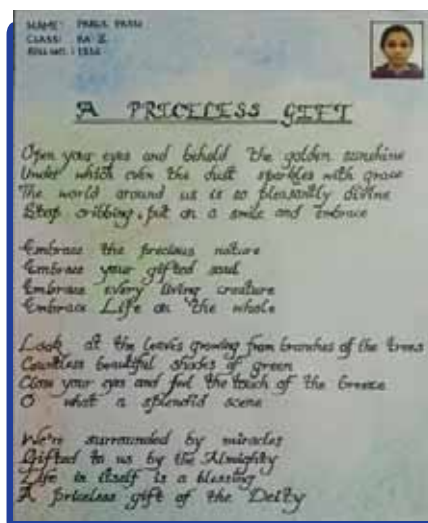 NAME: PARUL PASSI
CLASS: BA II
ROLL NO.: 1256
A PRICELESS GIFT
Open your eyes and behold the golden sunshine
Under which even the dust sparkles with grace
The world around us is so pleasantly divine
Stop cribbing, put on a smile and embrace
Embrace the precious nature
Embrace your gifted soul
Embrace every living creature
Embrace Life on the whole
Look at the leaves growing from branches of the trees
Countless beautiful shades of green
Close your eyes and feel the touch of the breeze
O what a splendid scene
We're surrounded by miracles
Gifted to us by the Almighty
Life in itself is a blessing
A priceless gift of the Deity